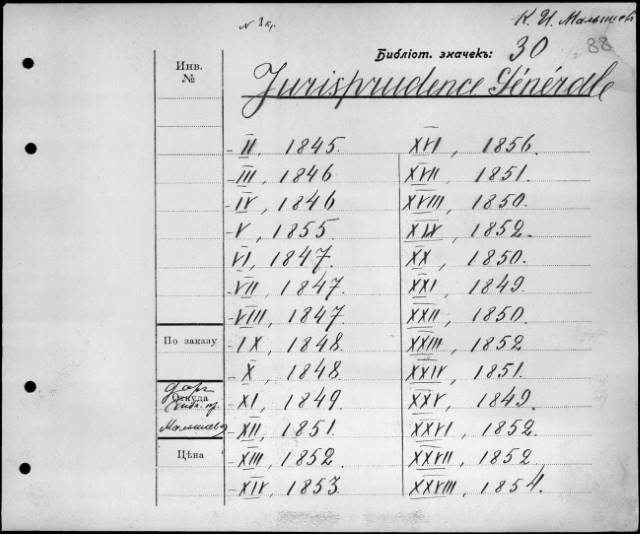 К. И. Малышев
N 1 кр.
Библіот. значекъ: 30 88
Инв.
№
Jurisprudence Générale
II, 1845. XVI, 1856.
III, 1846 XVII, 1851.
IV, 1846 XVIII, 1850.
V, 1855 XIX, 1852.
VI, 1847. XX, 1850.
VII, 1847. XXI, 1849.
VIII, 1847. XXII, 1850.
По заказу
IX, 1848. XXIII, 1852
X, 1848. XXIV, 1851.
Откуда
даръ
Малышева
XI, 1849. XXV, 1849.
XII, 1851. XXVI, 1852.
Цѣна
XIII, 1852. XXVII, 1852.
XIV, 1853. XXVIII, 1854.